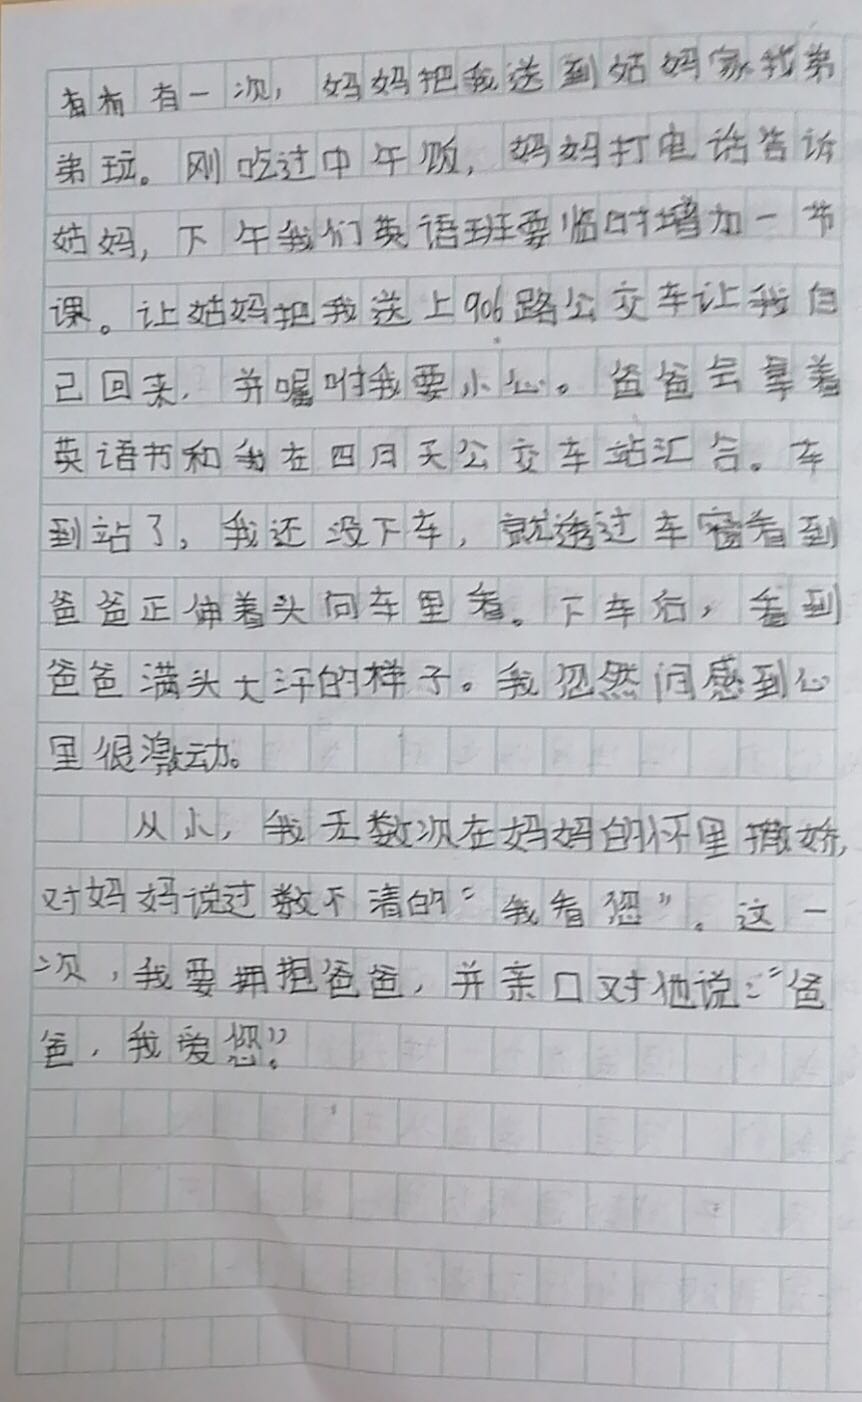 有一次，妈妈把我送到姑妈家找弟
弟玩。刚吃过中午饭，妈妈打电话告诉
姑妈，下午我们英语班要临时增加一节
课。让姑妈把我送上906路公交车让我自
己回来，并嘱咐我要小心。爸爸会拿着
英语书和我在四月天公交车站汇合。车
到站了，我还没下车，就透过车窗看到
爸爸正伸着头向车里看。下车后，看到
爸爸满头大汗的样子。我忽然间感到心
里很激动。
从小，我无数次在妈妈的怀里撒娇，
对妈妈说过数不清的“我看您”。这一
次，我要拥抱爸爸，并亲口对他说：“爸
爸，我爱您”。